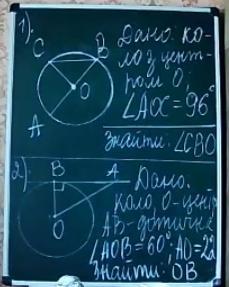 1).
C B
O
A
Дано: ко-
ло з цент-
ром O;
∠AOC = 96°
Знайти: ∠CBO
2)
B A
O
Дано:
коло, O-центр
AB-дотична
∠AOB = 60°; AO = 22
Знайти: OB